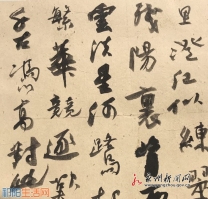 里澄江似練翠
殘陽裏背
雲淡星河鷺起
繁華競逐歎
千古馮高對此